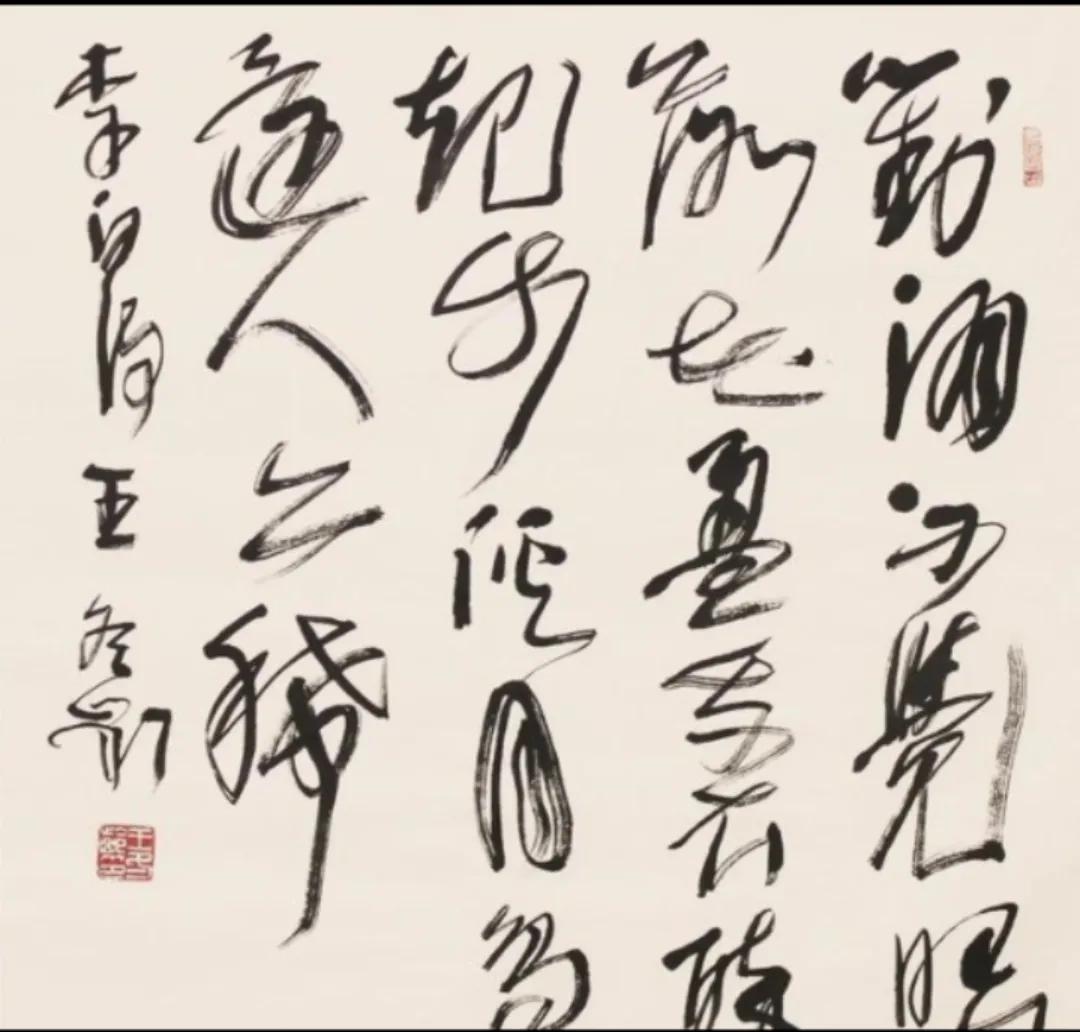 對酒不覺暝
落花盈我衣醉
起步溪月鳥
還人亦稀
李白詩王冬齡